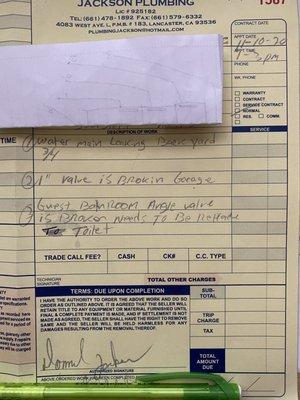 JACKSON PLUMBING
LIC # 925182
TEL: (661) 478-1892 FAX: (661) 579-6332
4083 WEST AVE. L, P.M.B. # 183, LANCASTER, CA 93536
PLUMBINGJACKSON@HOTMAIL.COM
1567
CONTRACT DATE
APPT DATE
11-10-20
APPT TIME
PM
PHONE
WK. PHONE
WARRANTY
CONTRACT
SERVICE CONTRACT
NORMAL
RES. COMM.
TIME
DESCRIPTION OF WORK
SERVICE
1 Water main Leaking Back yard
3/4
2 1" valve is Brokin Garage
3 Guest BathRoom Angle valve
is Brokon Needs To Be
To Toilet
TRADE CALL FEE? CASH CK# C.C. TYPE
TECHNICIAN
SIGNATURE
TOTAL OTHER CHARGES
TERMS: DUE UPON COMPLETION
I HAVE THE AUTHORITY TO ORDER THE ABOVE WORK AND DO SO
ORDER AS OUTLINED ABOVE. IT IS AGREED THAT THE SELLER WILL
RETAIN TITLE TO ANY EQUIPMENT OR MATERIAL FURNISHED UNTIL
FINAL & COMPLETE PAYMENT IS MADE, AND IF SETTLEMENT IS NOT
MADE AS AGREED, THE SELLER SHALL HAVE THE RIGHT TO REMOVE
SAME AND THE SELLER WILL BE HELD HARMLESS FOR ANY
DAMAGES RESULTING FROM THE REMOVAL THEREOF.
SUB-
TOTAL
TRIP
CHARGE
TAX
TOTAL
AMOUNT
DUE
AUTHORIZED SIGNATURE